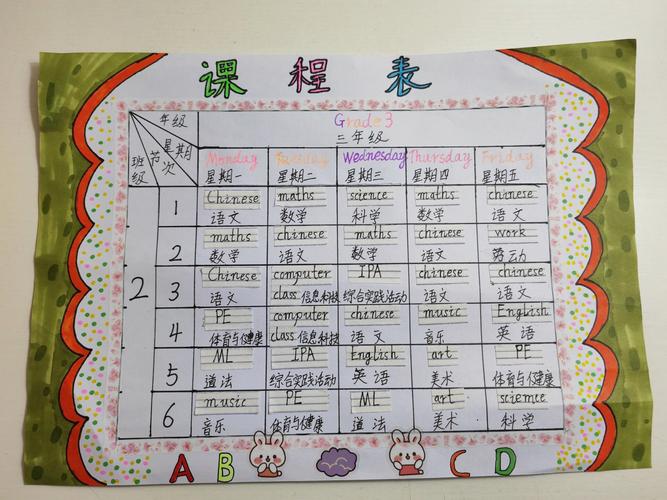 课程表
年级
星期
节次
班级
Grade3
三年级
Monday Tuesday Wednesday Thursday Friday
星期一 星期二 星期三 星期四 星期五
2
1 Chinese maths science maths chinese
语文 数学 科学 数学 语文
2 maths chinese maths chinese work
数学 语文 数学 语文 劳动
3 Chinese computer IPA chinese chinese
语文 class 信息科技 综合实践活动 语文 语文
4 PE computer chinese music English
体育与健康 class 信息科技 语文 音乐 英语
5 ML IPA English art PE
道法 综合实践活动 英语 美术 体育与健康
6 music PE ML art science
音乐 体育与健康 道法 美术 科学
A B C D